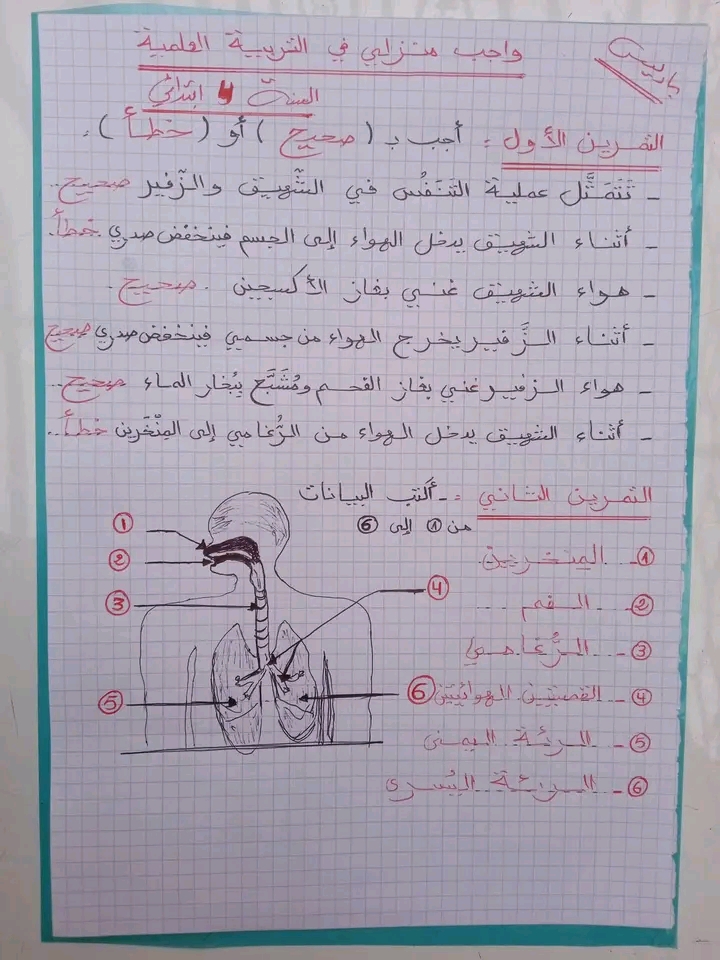 واجب منزلي في التربية العلمية
السنة 4 ابتدائي
التمرين الأول : أجب بـ (صحيح) أو (خطأ) :
- تَتَمَثَّل عملية التَنَفُس في الشَّهيق والزَّفير صحيح..
- أثناء الشهيق يدخل الهواء إلى الجسم فينخفض صدري خطأ.
- هواء الشهيق غني بغاز الأكسجين . صحيح .
- أثناء الزَّفير يخرج الهواء من جسمي فينخفض صدري صحيح
- هواء الزفير غني بغاز الفحم ومُشَبَّع بِبُخار الماء صحيح..
- أثناء الشهيق يدخل الهواء من الرُّغامي إلى المِنْخَرين خطأ..
التمرين الثاني :- أكتب البيانات
من 1 إلى 6
1
2
3
4
5
6
1- المنخرين.
2- الفم ...
3- الرُّغامي
4- القصبتين الهوائيتين
5- الرئة اليمنى
6- الرئة اليُسرى